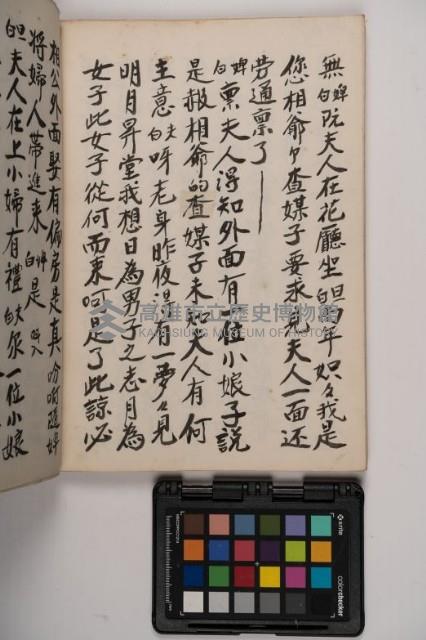 無婢白阮夫人在花廳坐旦白有年妳々我是
您相爺卩查媒子要求見夫人一面还
劳通禀了
婢白禀夫人得知外面有一位小娘子說
是赧相爺的查媒子未知夫人有何
主意夫白呀老身昨夜得有一夢々見
明月昇堂我想日為男子之志月為
女子此女子從何而來呵是了此諒必
相公外面娶有偏房是真吟咐隨婢
將婦人帶進來婢白是
旦白夫人在上小婦有禮夫白尔一位小娘
高雄市立歷史博物館
KAOHSIUNG MUSEUM OF HISTORY
x-rite
colorchecker